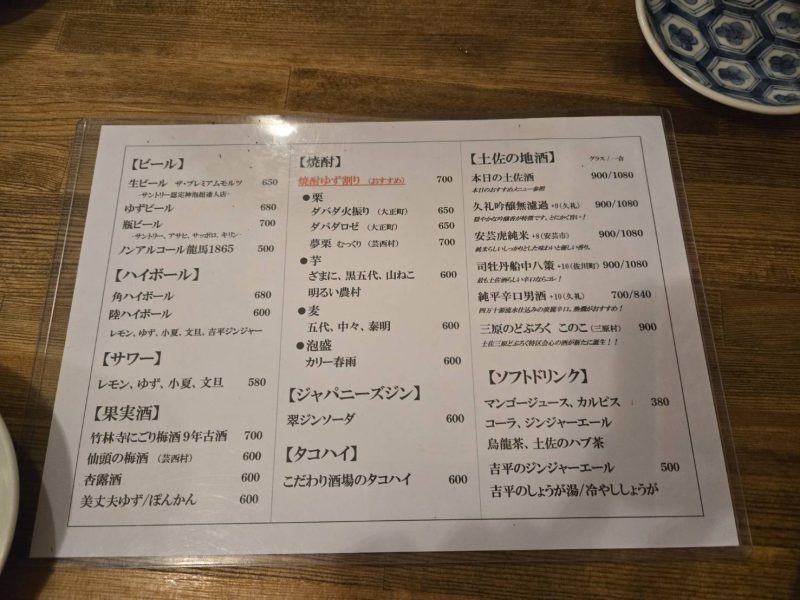 【ビール】
生ビール ザ・プレミアムモルツ 650
-サントリー認定神泡超達人店-
ゆずビール 680
瓶ビール 700
-サントリー、アサヒ、サッポロ、キリン-
ノンアルコール龍馬1865 500
【ハイボール】
角ハイボール 680
陸ハイボール 600
レモン、ゆず、小夏、文旦、吉平ジンジャー
【サワー】
レモン、ゆず、小夏、文旦 580
【果実酒】
竹林寺にごり梅酒9年古酒 700
仙頭の梅酒 (芸西村) 600
杏露酒 600
美丈夫ゆず/ぽんかん 600
【焼酎】
焼酎ゆず割り (おすすめ) 700
●栗
ダバダ火振り (大正町) 650
ダバダロゼ (大正町) 650
夢栗 むっくり (芸西村) 700
●芋
ざまに、黒五代、山ねこ 600
明るい農村
●麦
五代、中々、泰明 600
●泡盛
カリー春雨 600
【ジャパニーズジン】
翠ジンソーダ 600
【タコハイ】
こだわり酒場のタコハイ 600
【土佐の地酒】 グラス/一合
本日の土佐酒 900/1080
本日のおすすめメニュー参照
久礼吟醸無濾過 +9(久礼) 900/1080
穏やかな吟醸香が特徴です、とにかく旨い!
安芸虎純米 +8(安芸市) 900/1080
純米らしいしっかりとした味わいと優しい香り。
司牡丹船中八策 +10(佐川町) 900/1080
最も土佐酒らしい辛口ならコレ!
純平辛口男酒 +10(久礼) 700/840
四万十源流水仕込みの淡麗辛口。熱燗がおすすめ!
三原のどぶろく このこ(三原村) 900
土佐三原どぶろく特区会心の酒が新たに誕生!!
【ソフトドリンク】
マンゴージュース、カルピス 380
コーラ、ジンジャーエール
烏龍茶、土佐のハブ茶
吉平のジンジャーエール 500
吉平のしょうが湯/冷やししょうが